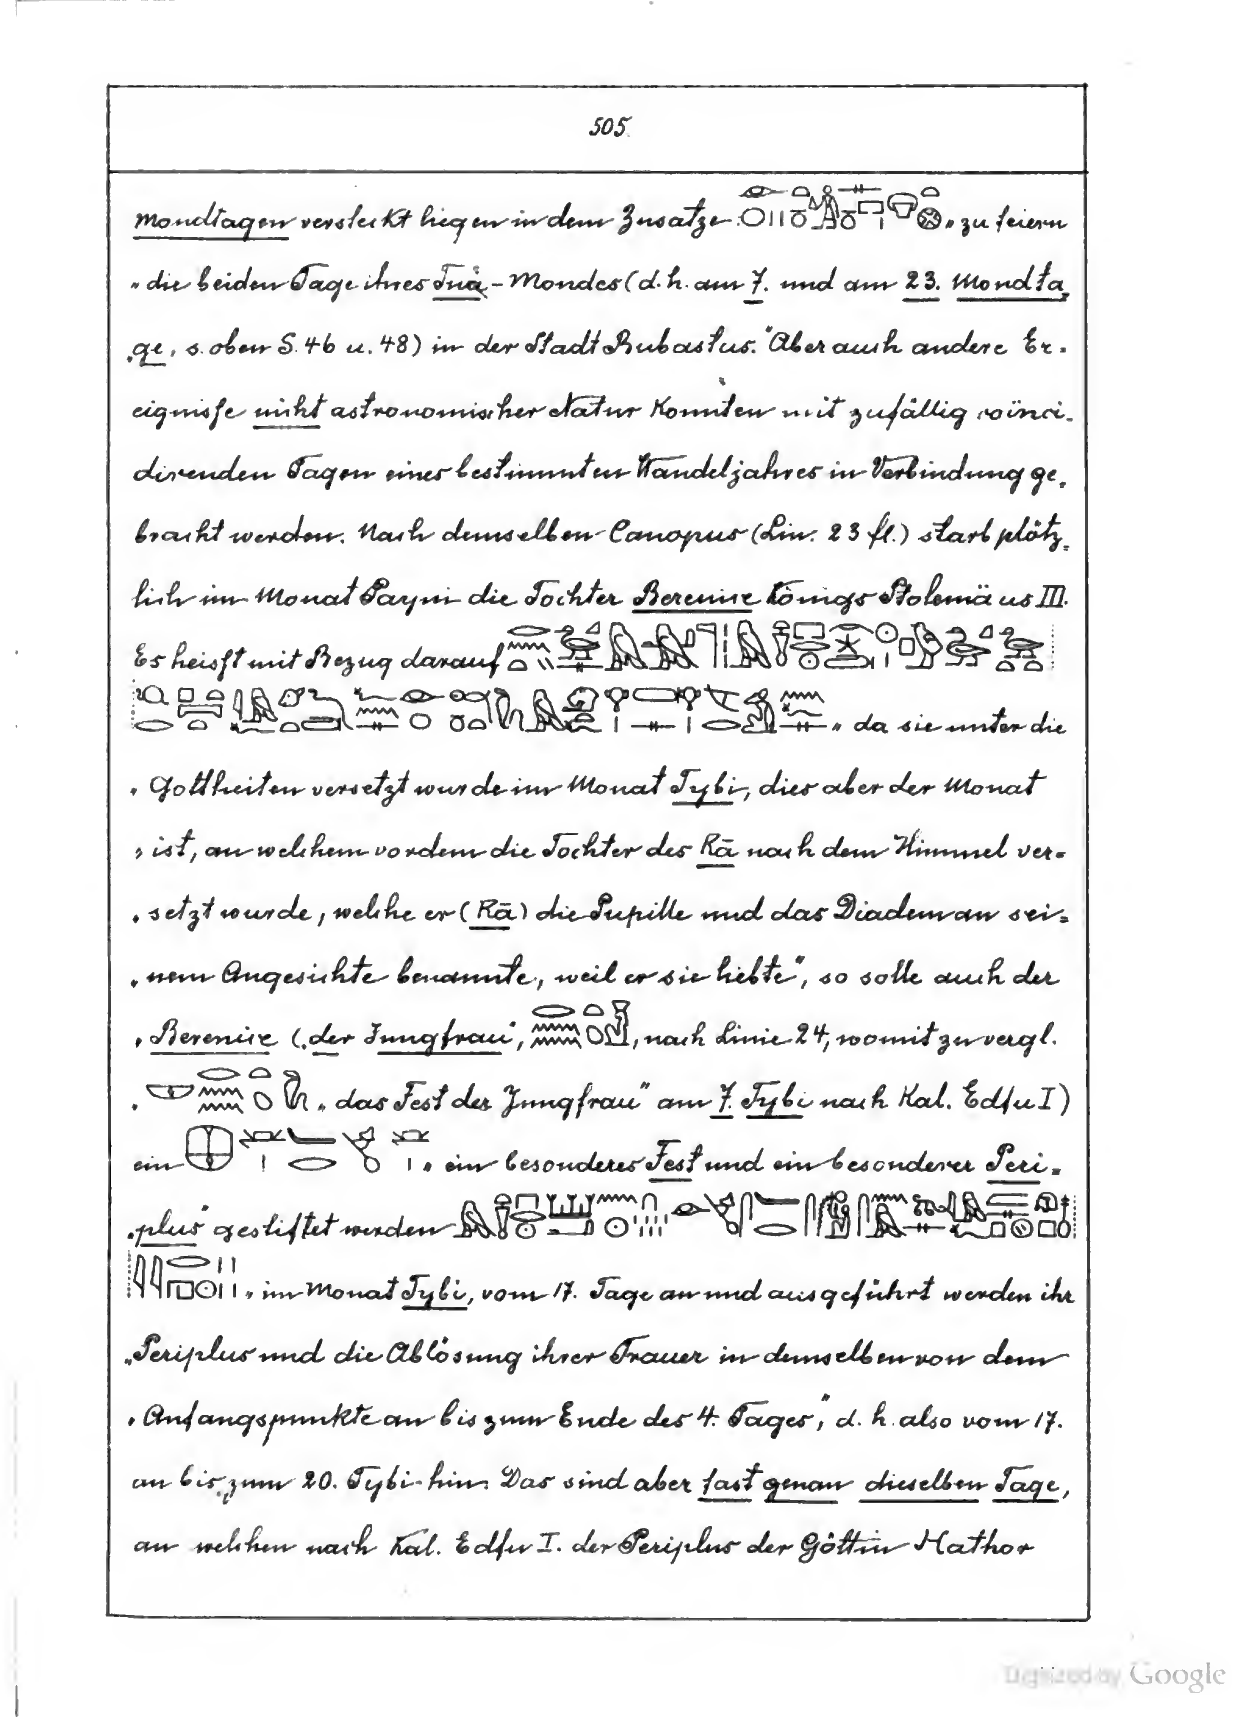 505.
Mondtagen versteckt liegen in dem Zusatze „zu feiern
„die beiden Tage ihres Tuȧ-Mondes (d. h. am 7. und am 23. Mondta„
„ge, s. oben S. 46 u. 48) in der Stadt Bubastus." Aber auch andere Er-
eignisse nicht astronomischer Natur konnten mit zufällig coïnci-
direnden Tagen eines bestimmten Wandeljahres in Verbindung ge-
bracht werden. Nach demselben Canopus (Lin. 23 fl.) starb plötz-
lich im Monat Payni die Tochter Berenice Königs Ptolemäus III.
Es heisst mit Bezug darauf
„da sie unter die
„Gottheiten versetzt wurde im Monat Tybi, dies aber der Monat
„ist, an welchem vordem die Tochter des Rā nach dem Himmel ver-
„setzt wurde, welche er (Rā) die Pupille und das Diadem an sei-
„nem Angesichte benannte, weil er sie liebte", so solle auch der
„Berenice („der Jungfrau", , nach Linie 24, womit zu vergl.
„ „das Fest der Jungfrau" am 7. Tybi nach Kal. Edfu I)
ein „ein besonderes Fest und ein besonderer Peri-
„plus" gestiftet werden
„im Monat Tybi, vom 17. Tage an und ausgeführt werden ihr
„Periplus und die Ablösung ihrer Trauer in demselben von dem
„Anfangspunkte an bis zum Ende des 4. Tages", d. h. also vom 17.
an bis zum 20. Tybi hin. Das sind aber fast genau dieselben Tage,
an welchen nach Kal. Edfu I. der Periplus der Göttin Hathor
Digitized by Google